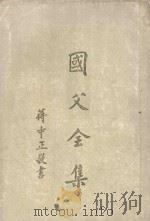 國父全集
蔣中正敬書